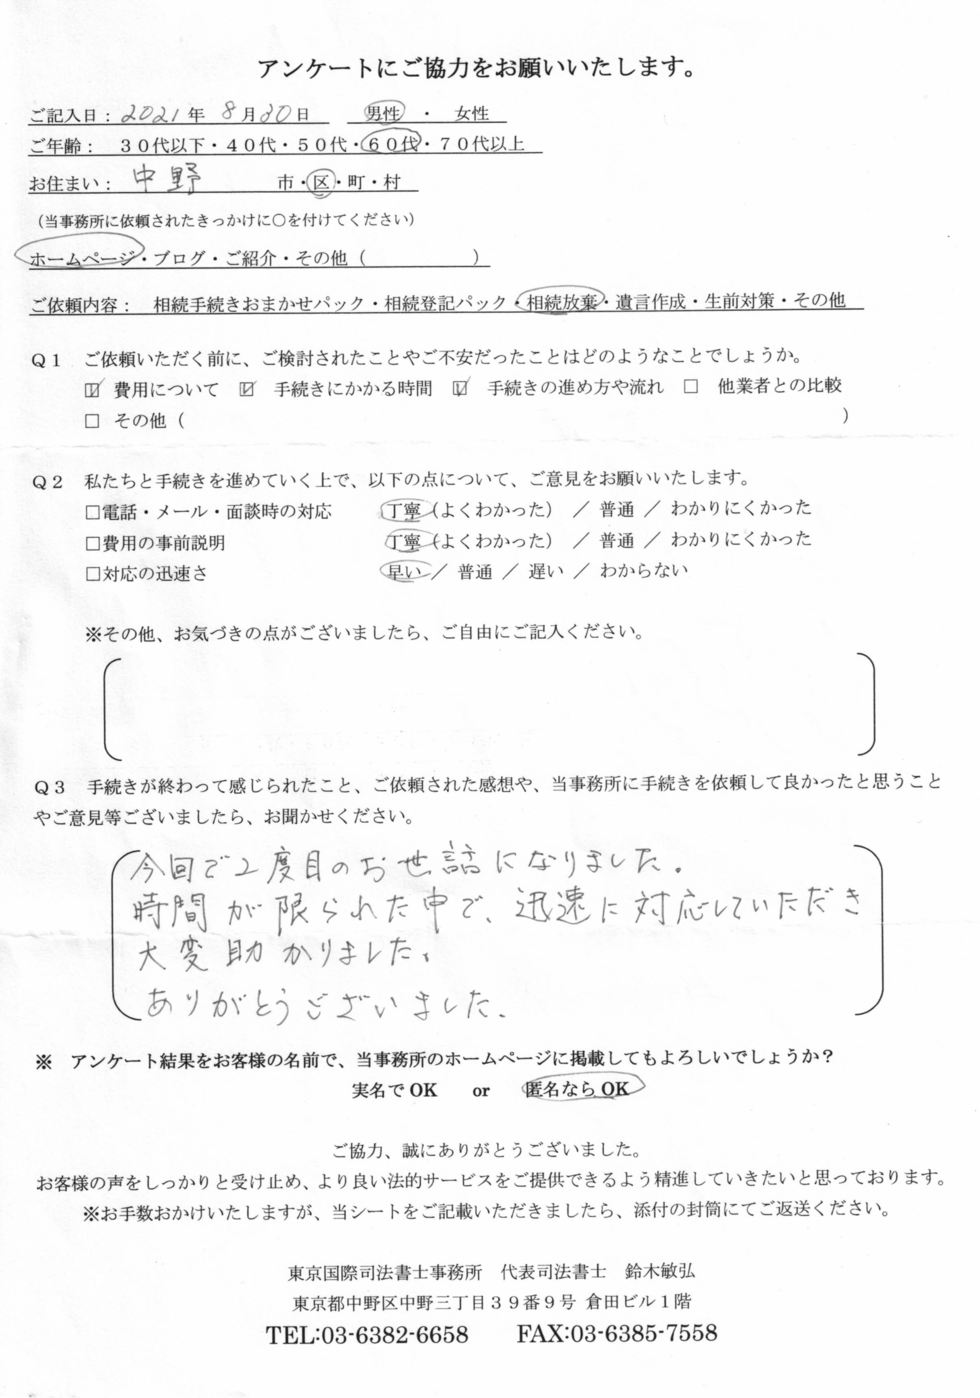 アンケートにご協力をお願いいたします。
ご記入日： 2021年 8月30日　男性 ・ 女性
ご年齢： 30代以下・40代・50代・60代・70代以上
お住まい： 中野　市・区・町・村
（当事務所に依頼されたきっかけに○を付けてください）
ホームページ・ブログ・ご紹介・その他（　　　　　　）
ご依頼内容： 相続手続きおまかせパック・相続登記パック・相続放棄・遺言作成・生前対策・その他
Q1　ご依頼いただく前に、ご検討されたことやご不安だったことはどのようなことでしょうか。
☑ 費用について　☑ 手続きにかかる時間　☑ 手続きの進め方や流れ　□ 他業者との比較
□ その他（　　　　　　　　　　　　　　　　）
Q2　私たちと手続きを進めていく上で、以下の点について、ご意見をお願いいたします。
□電話・メール・面談時の対応　丁寧（よくわかった） ／ 普通 ／ わかりにくかった
□費用の事前説明　丁寧（よくわかった） ／ 普通 ／ わかりにくかった
□対応の迅速さ　早い ／ 普通 ／ 遅い ／ わからない
※その他、お気づきの点がございましたら、ご自由にご記入ください。
Q3　手続きが終わって感じられたこと、ご依頼された感想や、当事務所に手続きを依頼して良かったと思うこと
やご意見等ございましたら、お聞かせください。
今回で2度目のお世話になりました。
時間が限られた中で、迅速に対応していただき
大変助かりました。
ありがとうございました.
※　アンケート結果をお客様の名前で、当事務所のホームページに掲載してもよろしいでしょうか？
実名でOK　or　匿名ならOK
ご協力、誠にありがとうございました。
お客様の声をしっかりと受け止め、より良い法的サービスをご提供できるよう精進していきたいと思っております。
※お手数おかけいたしますが、当シートをご記載いただきましたら、添付の封筒にてご返送ください。
東京国際司法書士事務所　代表司法書士　鈴木敏弘
東京都中野区中野三丁目39番9号 倉田ビル1階
TEL:03-6382-6658　FAX:03-6385-7558